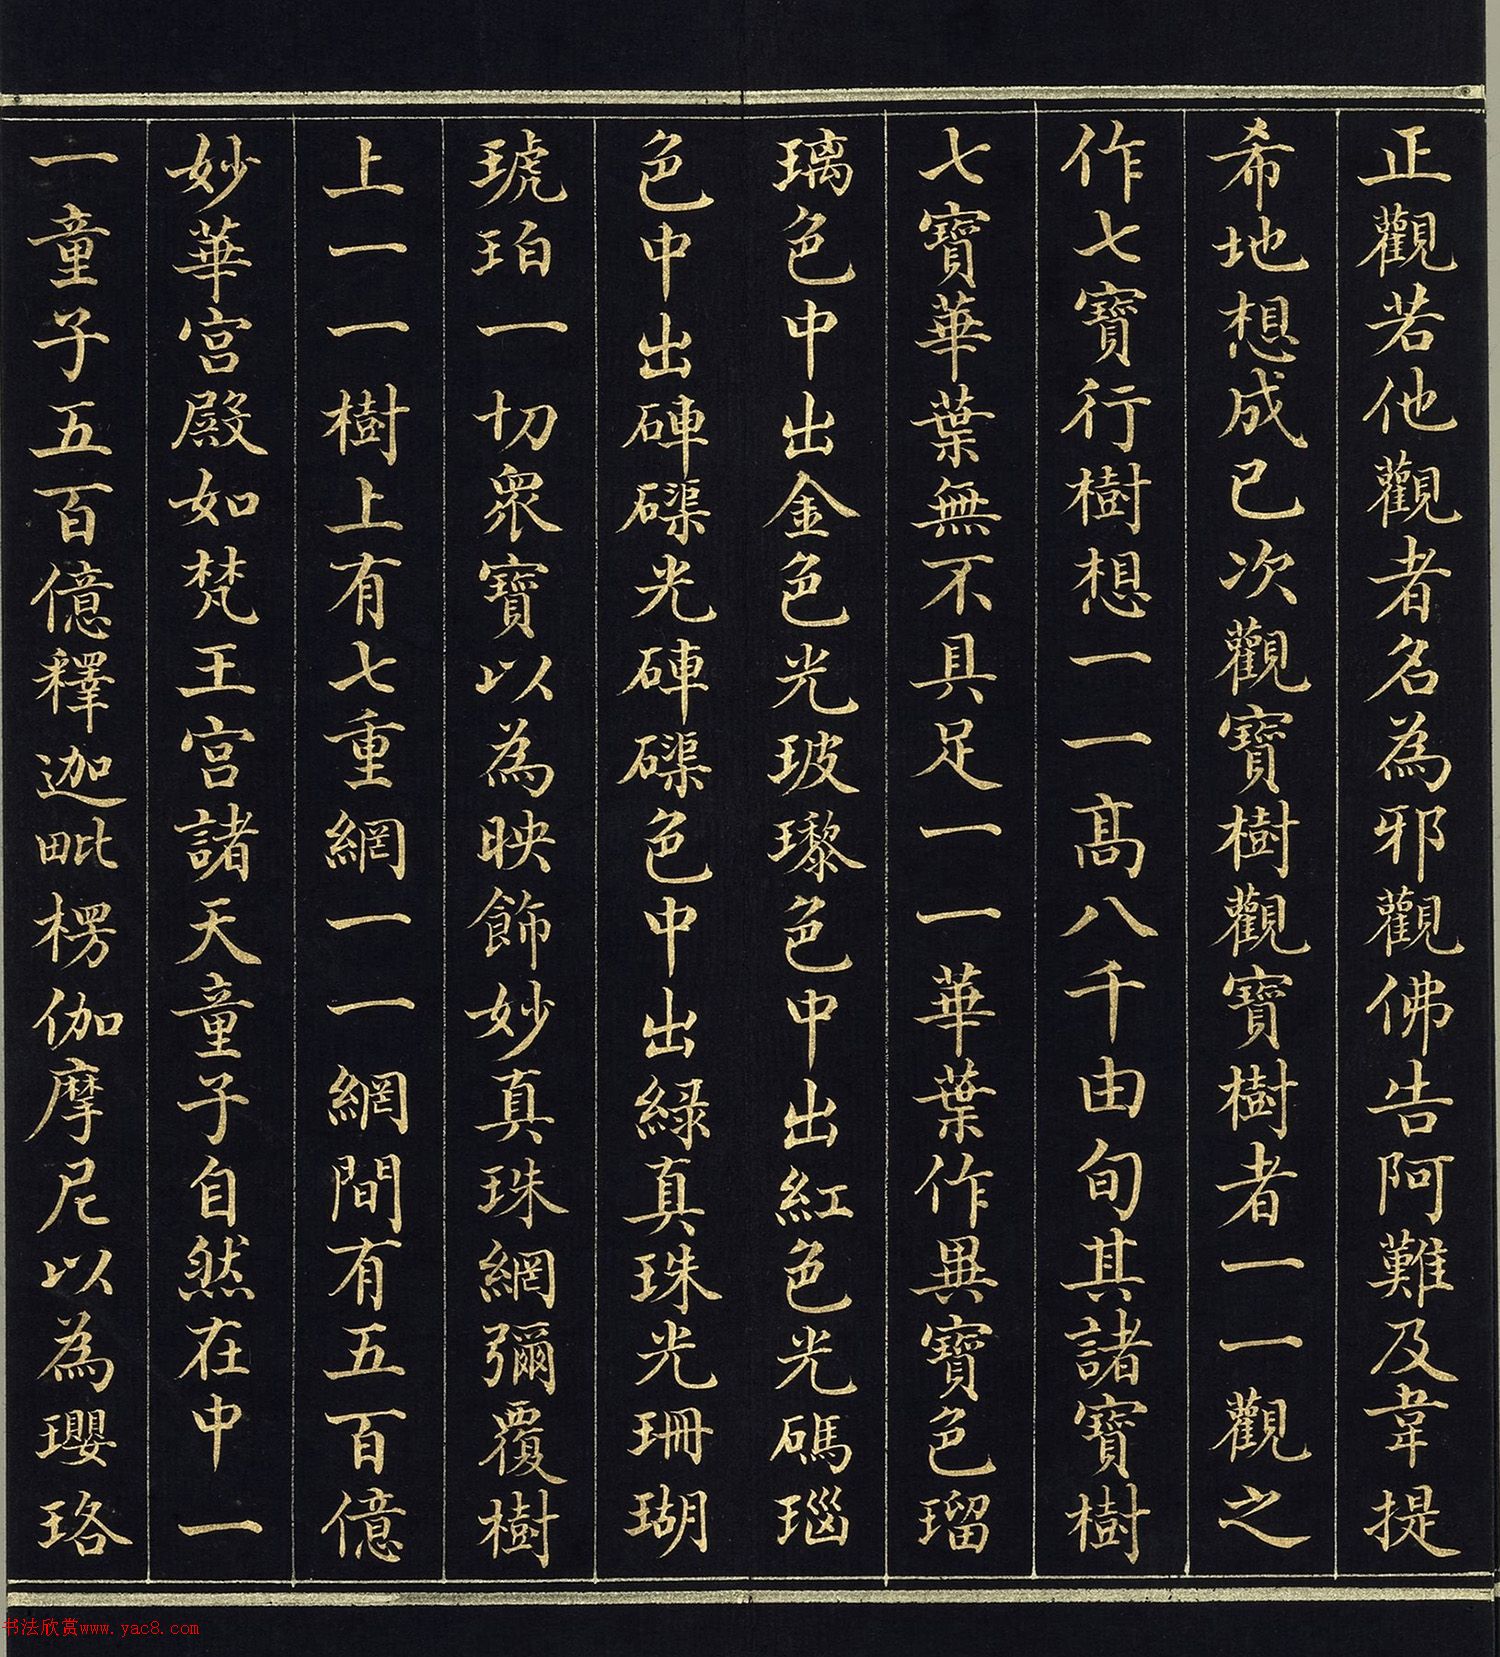 正觀若他觀者名為邪觀佛告阿難及韋提
希地想成已次觀寶樹觀寶樹者一一觀之
作七寶行樹想一一高八千由旬其諸寶樹
七寶華葉無不具足一一華葉作異寶色瑠
璃色中出金色光玻瓈色中出紅色光碼瑙
色中出硨磲光硨磲色中出綠真珠光珊瑚
琥珀一切眾寶以為映飾妙真珠網彌覆樹
上一一樹上有七重網一一網間有五百億
妙華宮殿如梵王宮諸天童子自然在中一
一童子五百億釋迦毗楞伽摩尼以為瓔珞
书法欣赏www.yac8.com